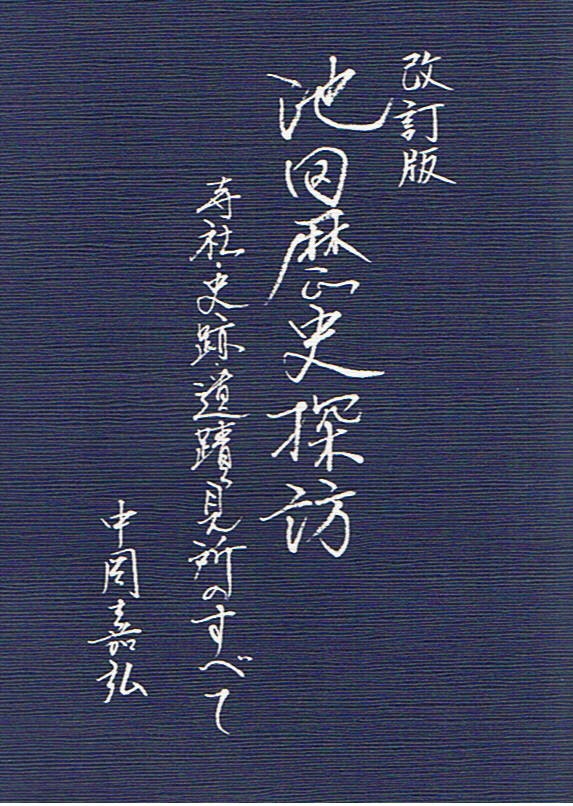 改訂版
池田歴史探訪
寺社・史跡・遺蹟・見所のすべて
中岡嘉弘